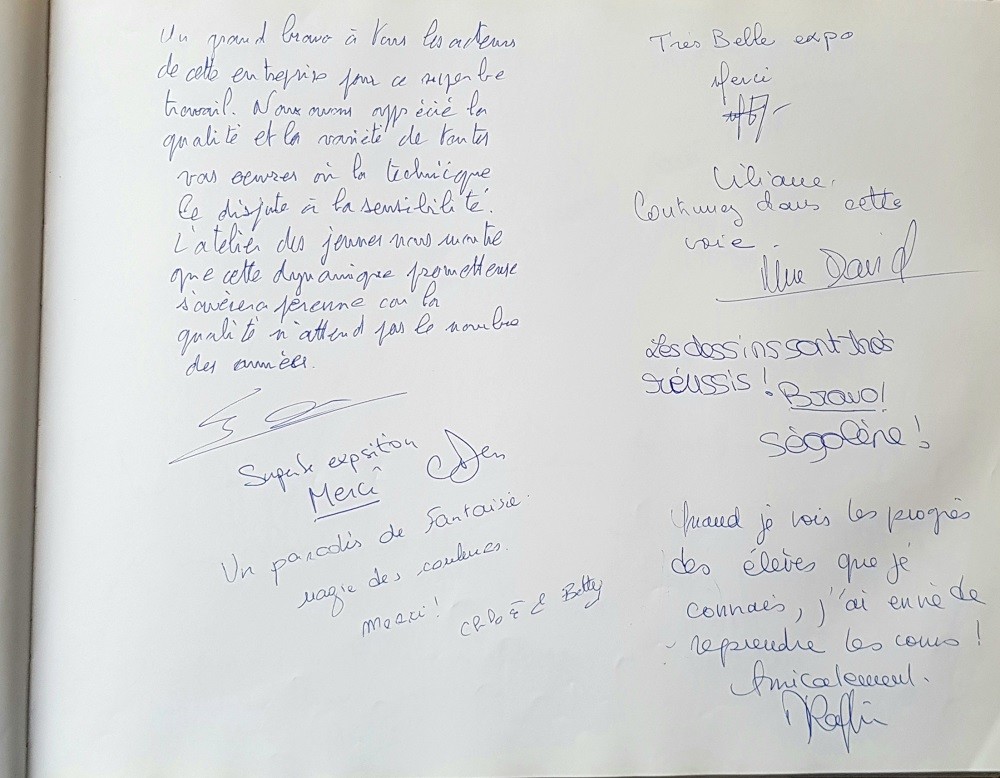 Un grand bravo à tous les acteurs
de cette entreprise pour ce superbe
travail. Nous avons apprécié la
qualité et la variété de toutes
vos oeuvres où la technique
se dispute à la sensibilité.
L'atelier des jeunes nous montre
que cette dynamique prometteuse
s'avèrera pérenne car la
qualité n'attend pas le nombre
des années.
Superbe expsition
Merci
Un paradis de Fantaisie.
magie des couleurs.
Merci!
& Betty
Très Belle expo
Merci
Liliane.
Continuez dans cette
voie.
Mme David
Les dessins sont très
réussis !
Bravo!
Ségolène !
Quand je vois les progrès
des élèves que je
connais, j'ai envie de
reprendre les cours !
Amicalement.